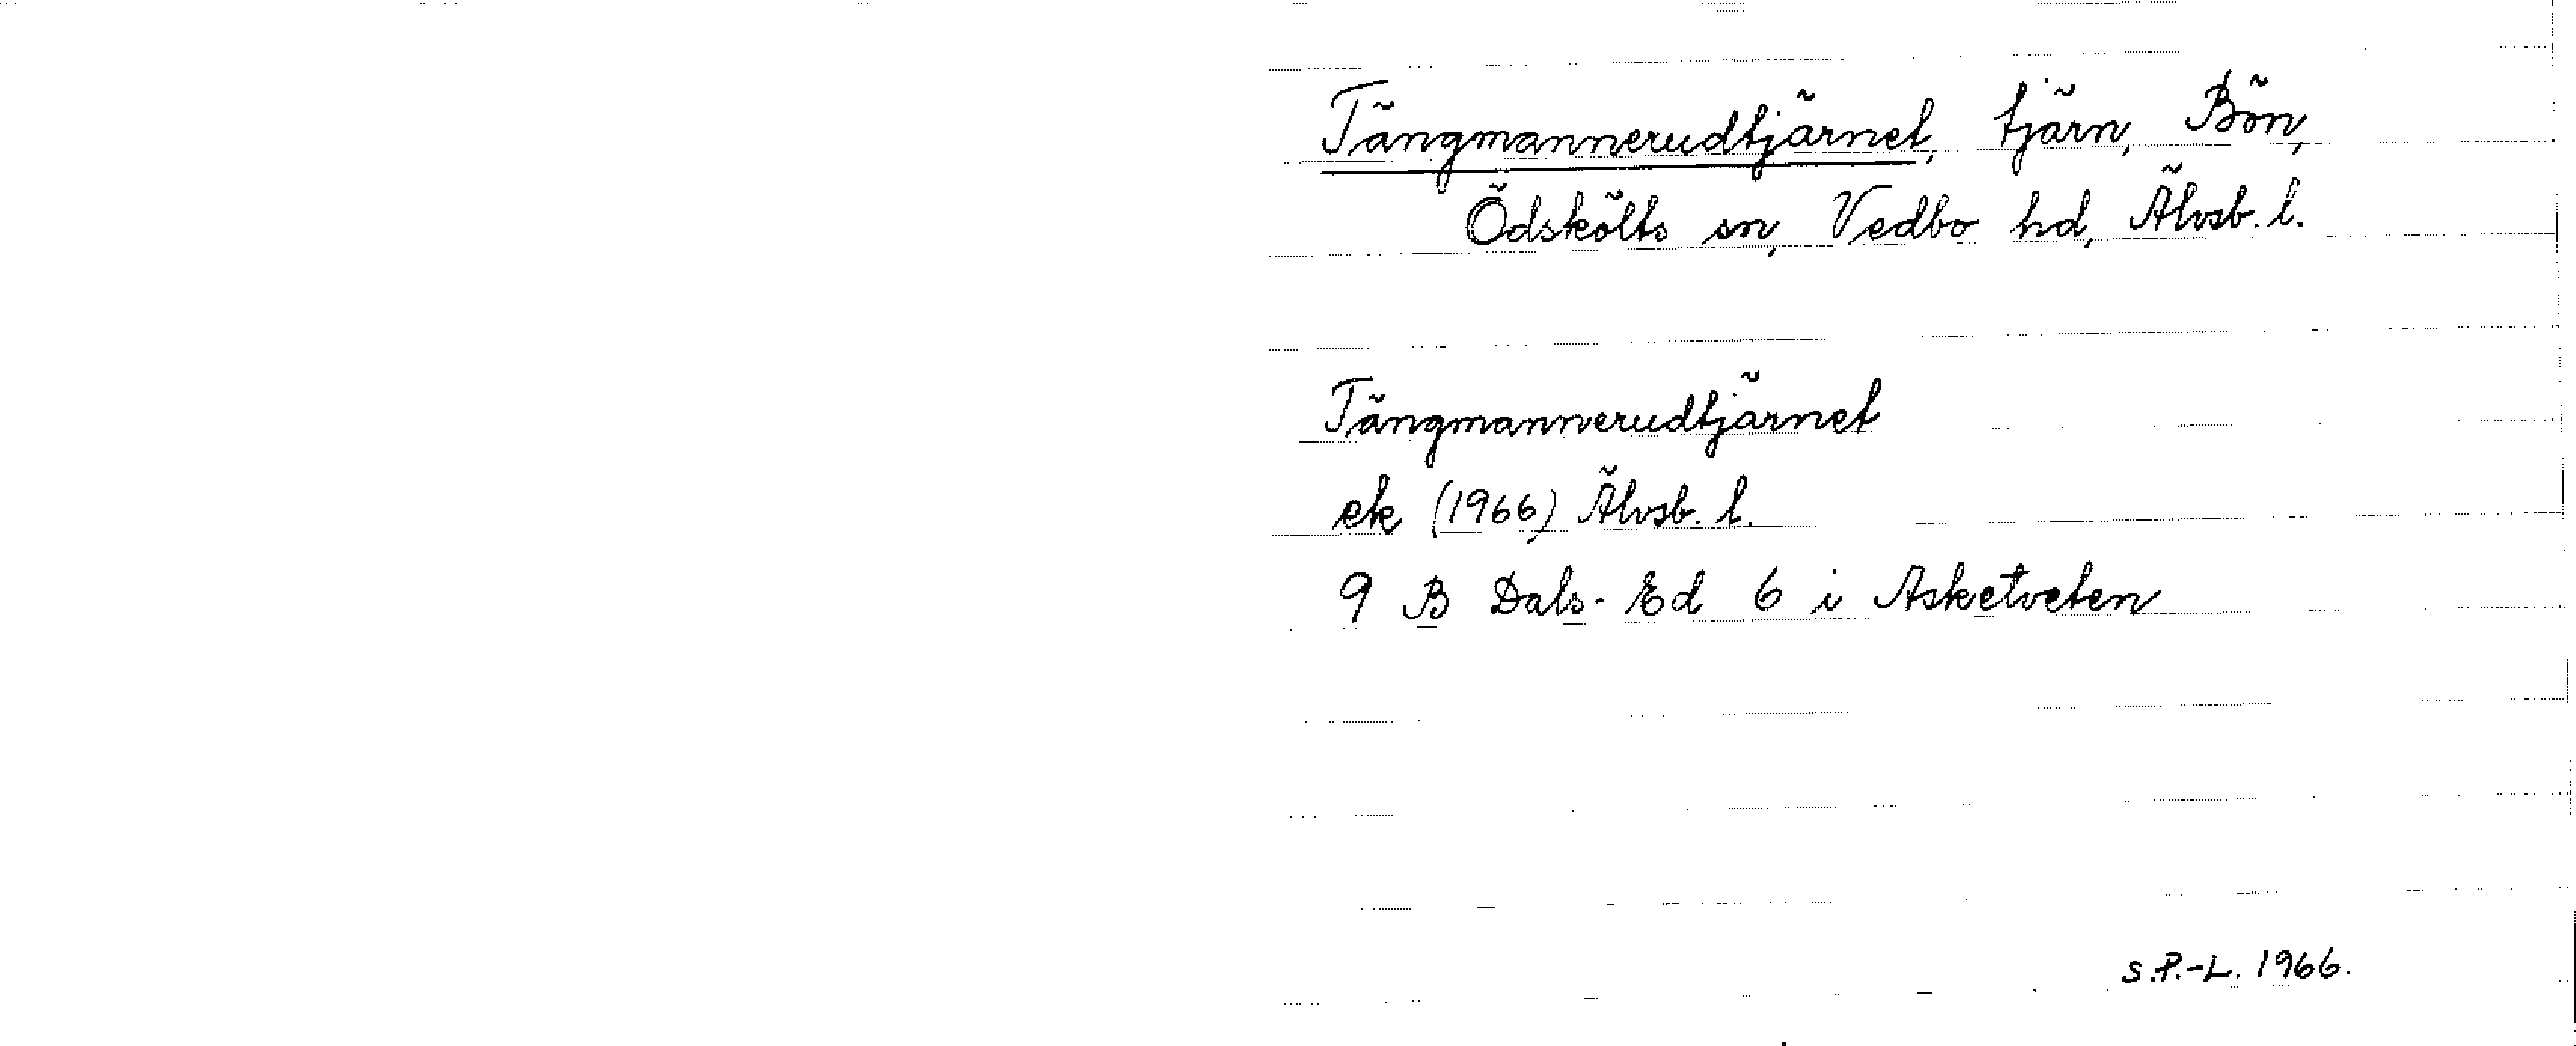 Tängmannerudtjärnet, tjärn, Bön,
Ödskölts sn, Vedbo hd, Älvsb. l.
Tängmannerudtjärnet
ek (1966) Älvsb. l.
9 B Dals-Ed 6 i Asketveten
S.P.-L. 1966.